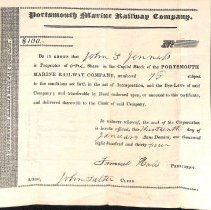 Portsmouth Marine Railway Company.
$100.
BE IT KNOWN that John S Jenness
is Proprietor of one Share in the Capital Stock of the PORTSMOUTH
MARINE RAILWAY COMPANY, numbered 76 subject
to the conditions set forth in the act of Incorporation, and the Bye-Laws of said
Company; and transferrable by Deed endorsed upon, or annexed to this certificate,
and delivered therewith to the Clerk of said Company.
In witness whereof, the seal of the Corporation
is hereto affixed, this thirteenth day of
January Anno Domini, one thousand
eight hundred and thirty four
Samuel PRESIDENT.
Attest, John CLERK.